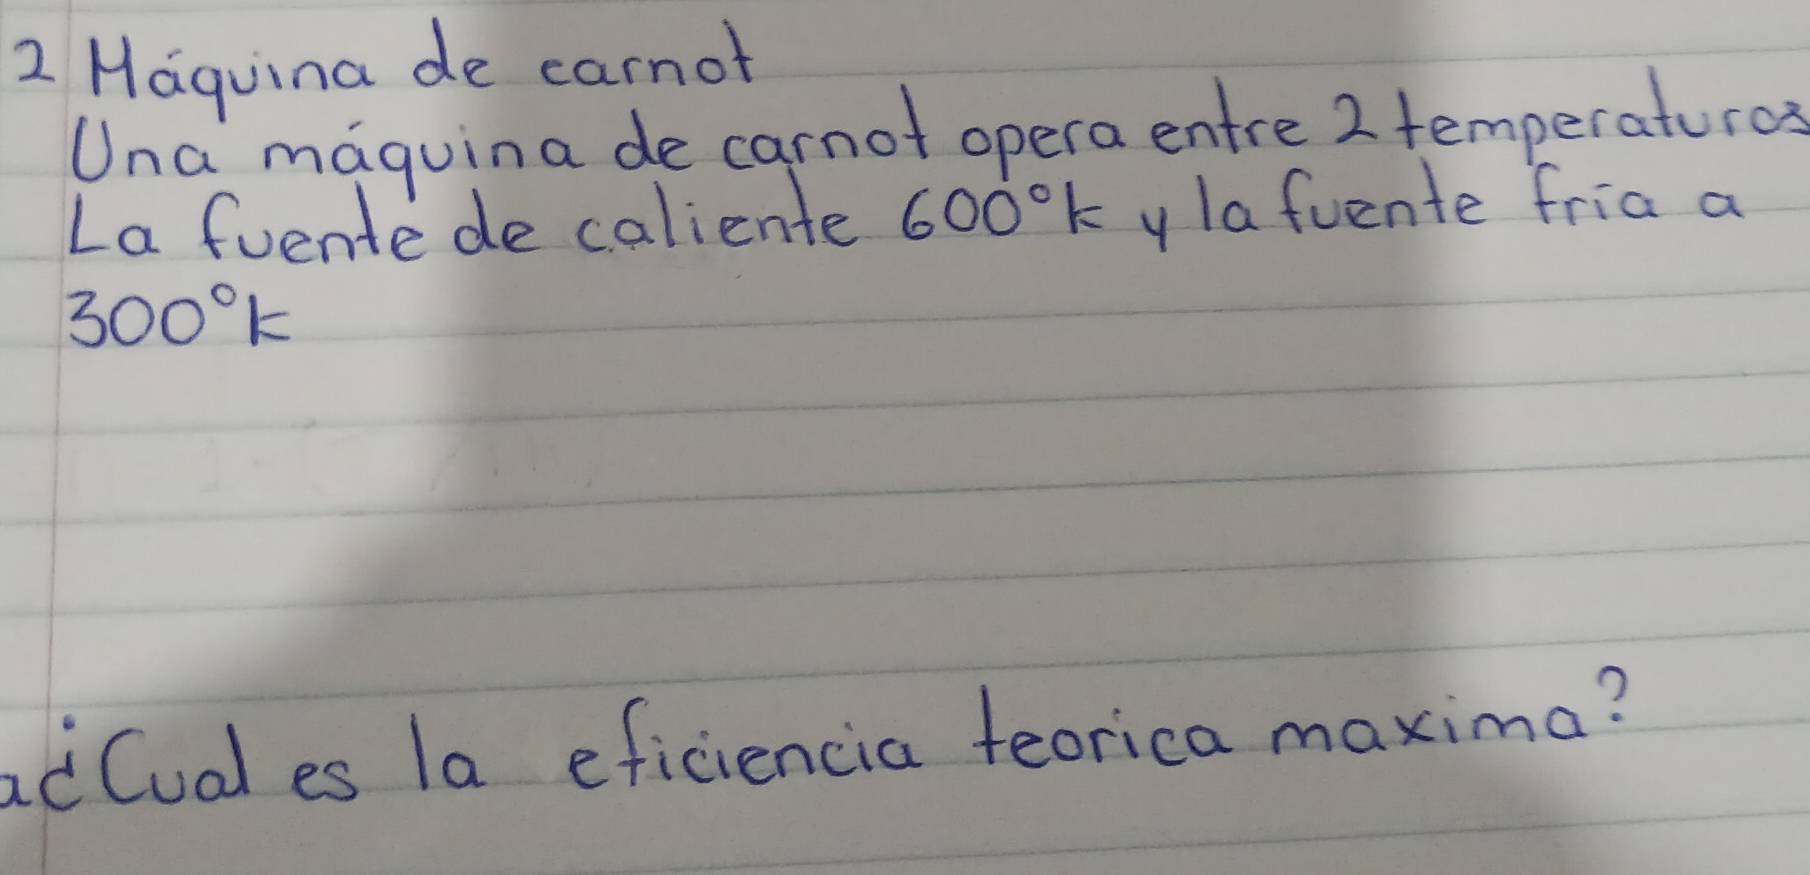 2 Máquina de carnot
Una máquina de carnot opera entre 2 temperaturas
La fuente de caliente 600°k y la fuente fría a
300°k
a ¿Cual es la eficiencia teorica maxima?